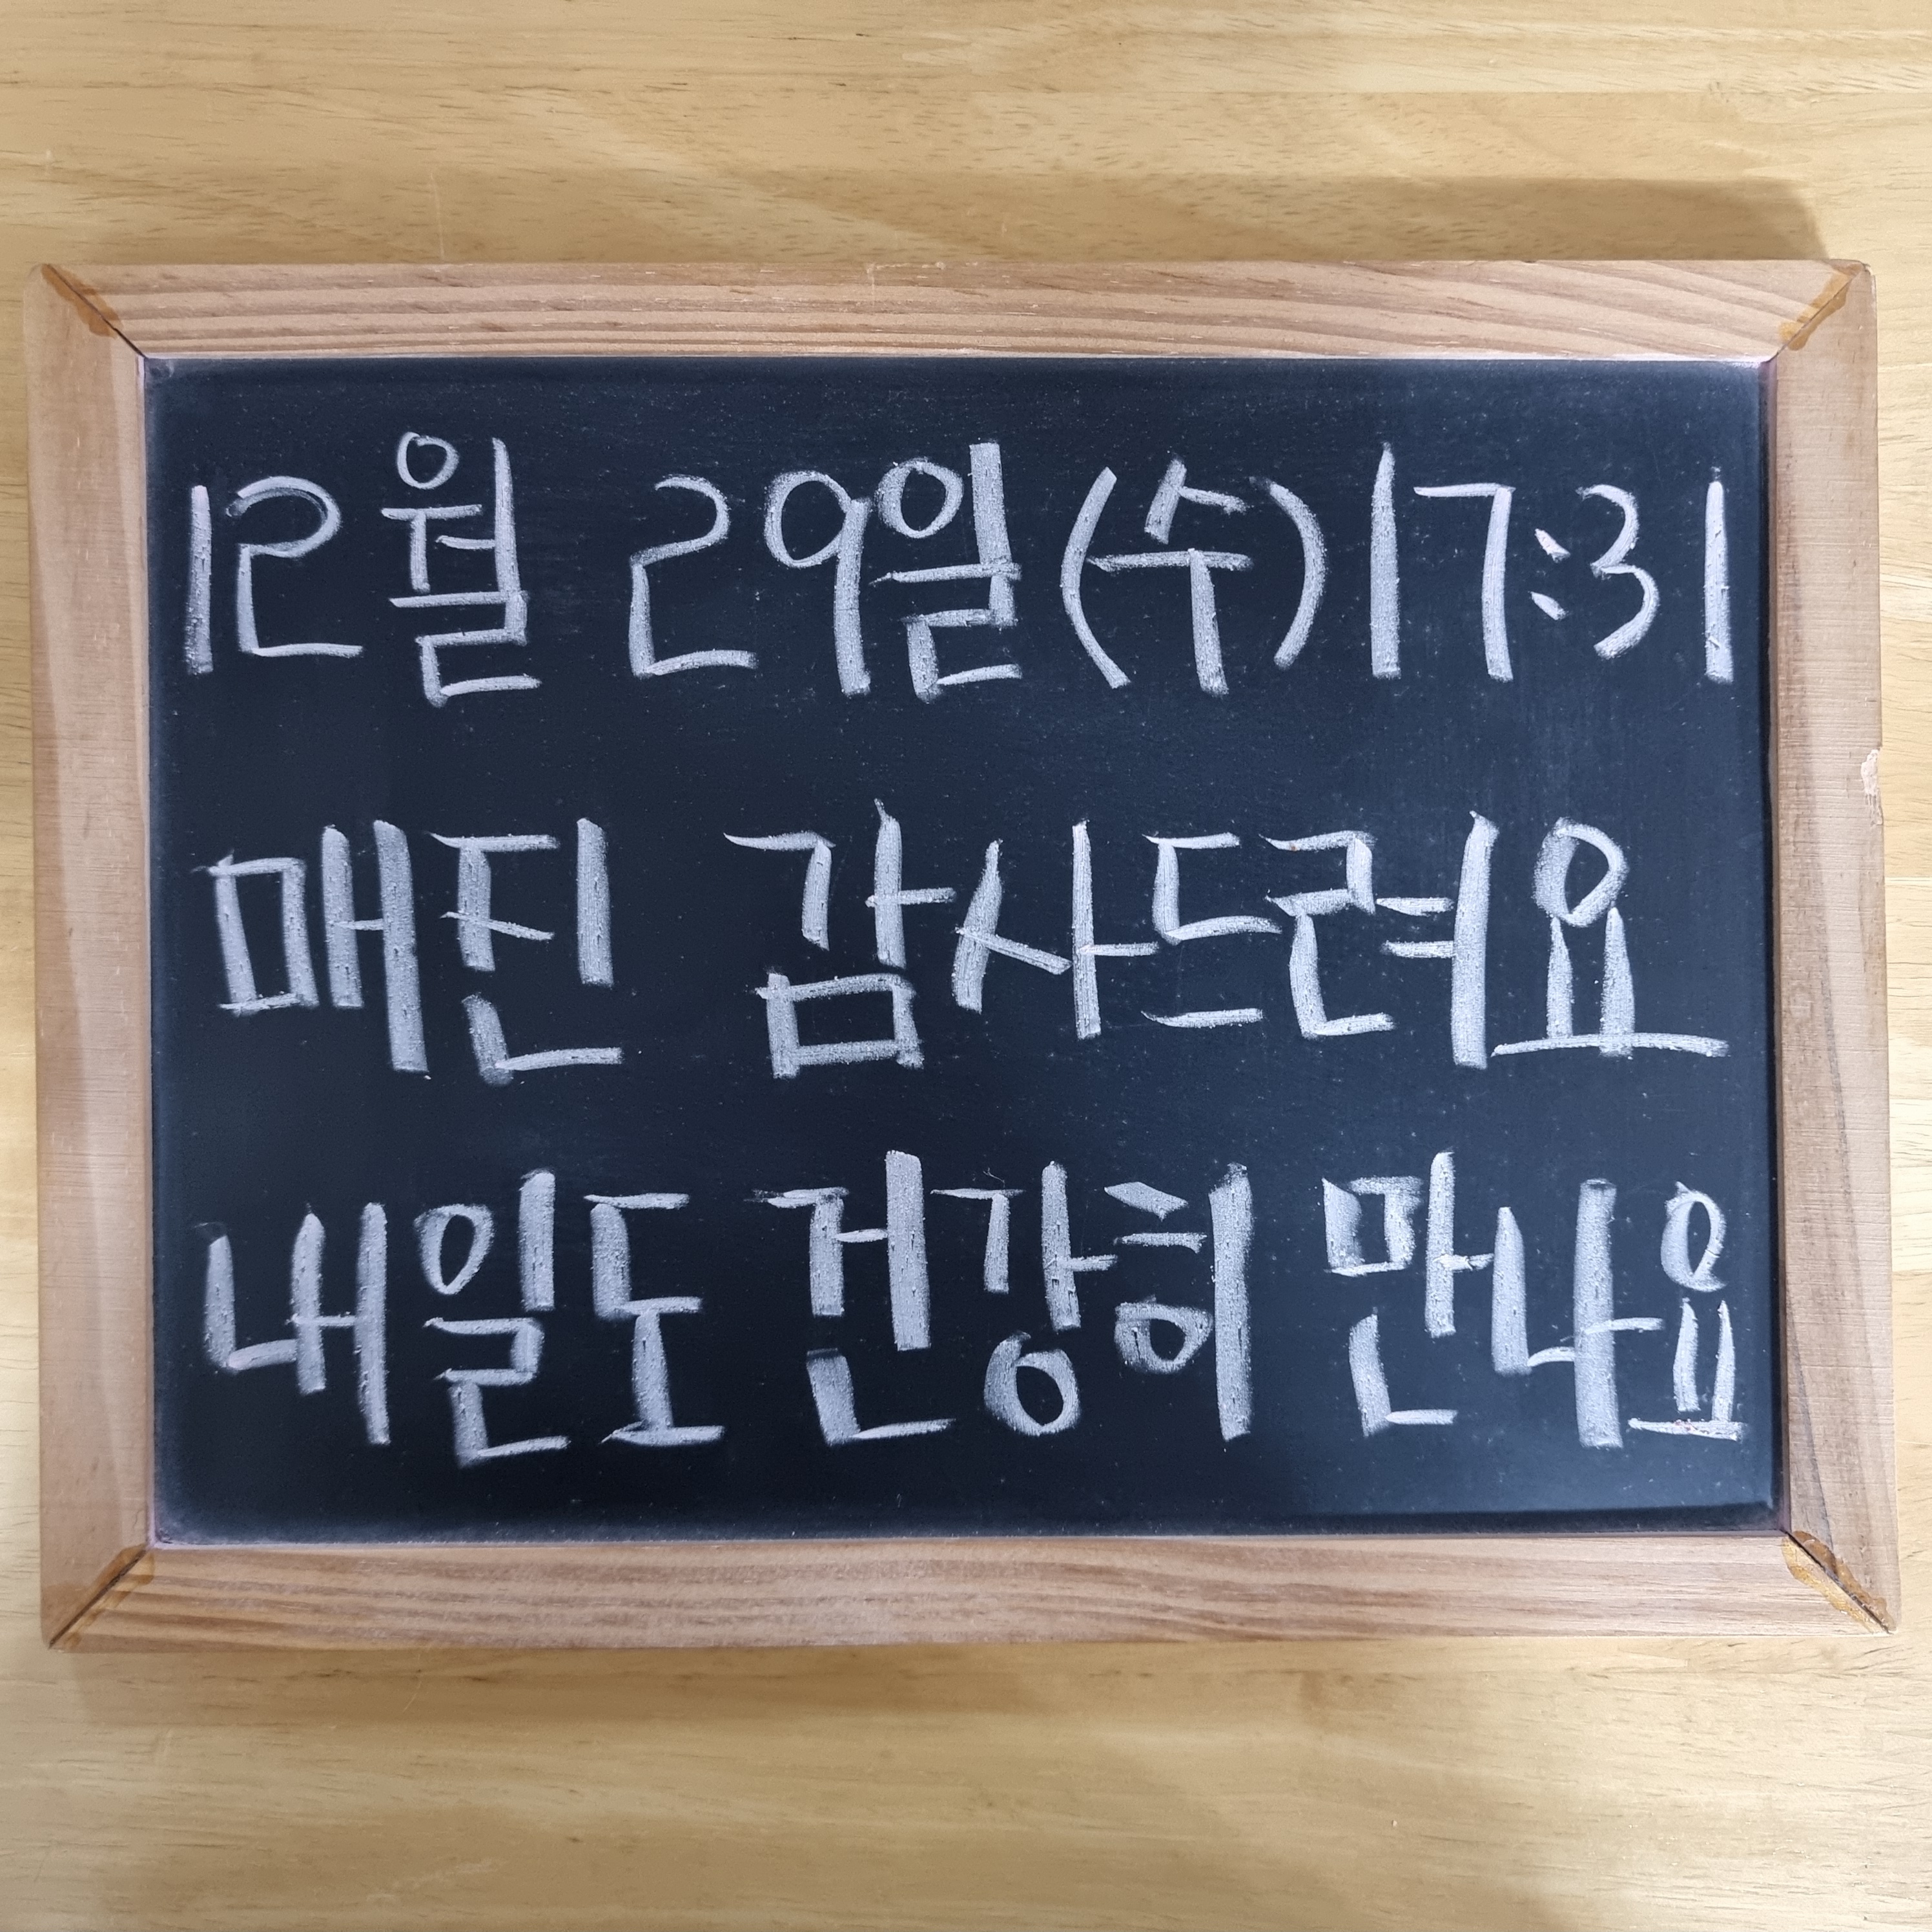 12월 29일(수)17:31
매진 감사드려요
내일도 건강히 만나요